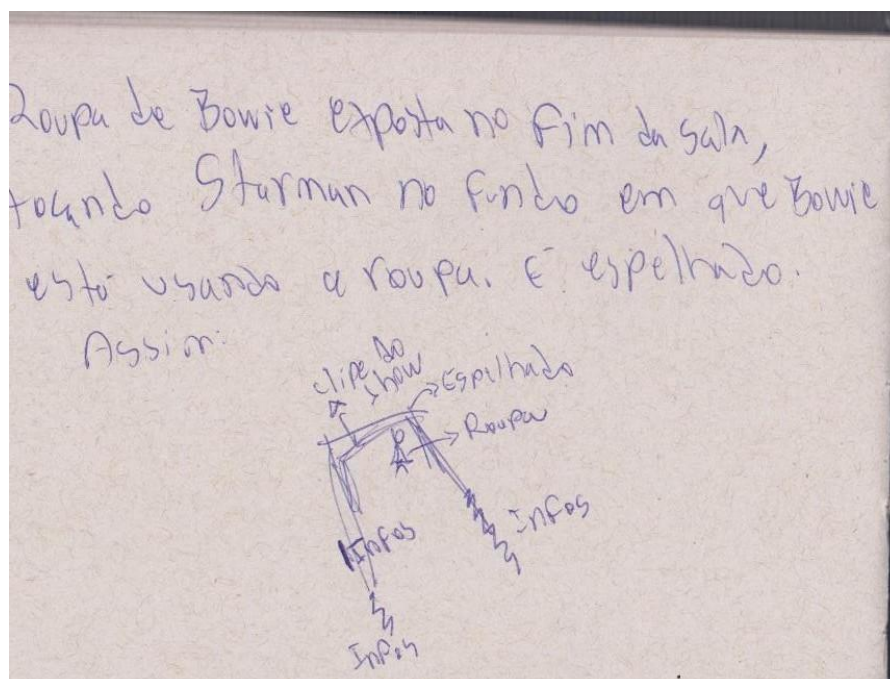 Roupa de Bowie exposta no fim da sala,
tocando Starman no fundo em que Bowie
está usando a roupa. É espelhado.
Assim:
clipe do
show
Espelhado
Roupa
Infos
Infos
Infos